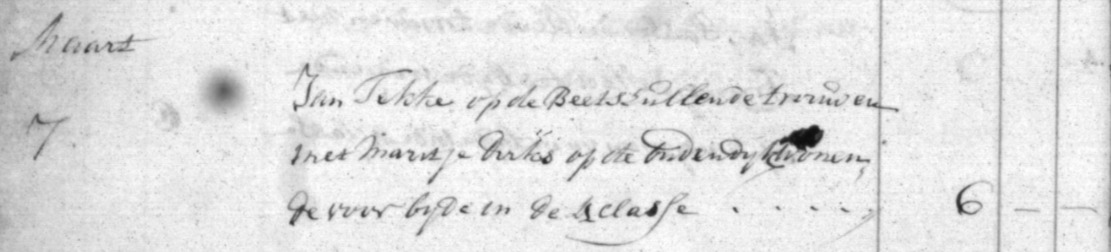 Maart
7. Jan Tekke op de Beets Zullende trouwen
met Maritje Dirks op de Oudendyk wonen,
de voor byde in de 4 classe . . . . , 6 — —